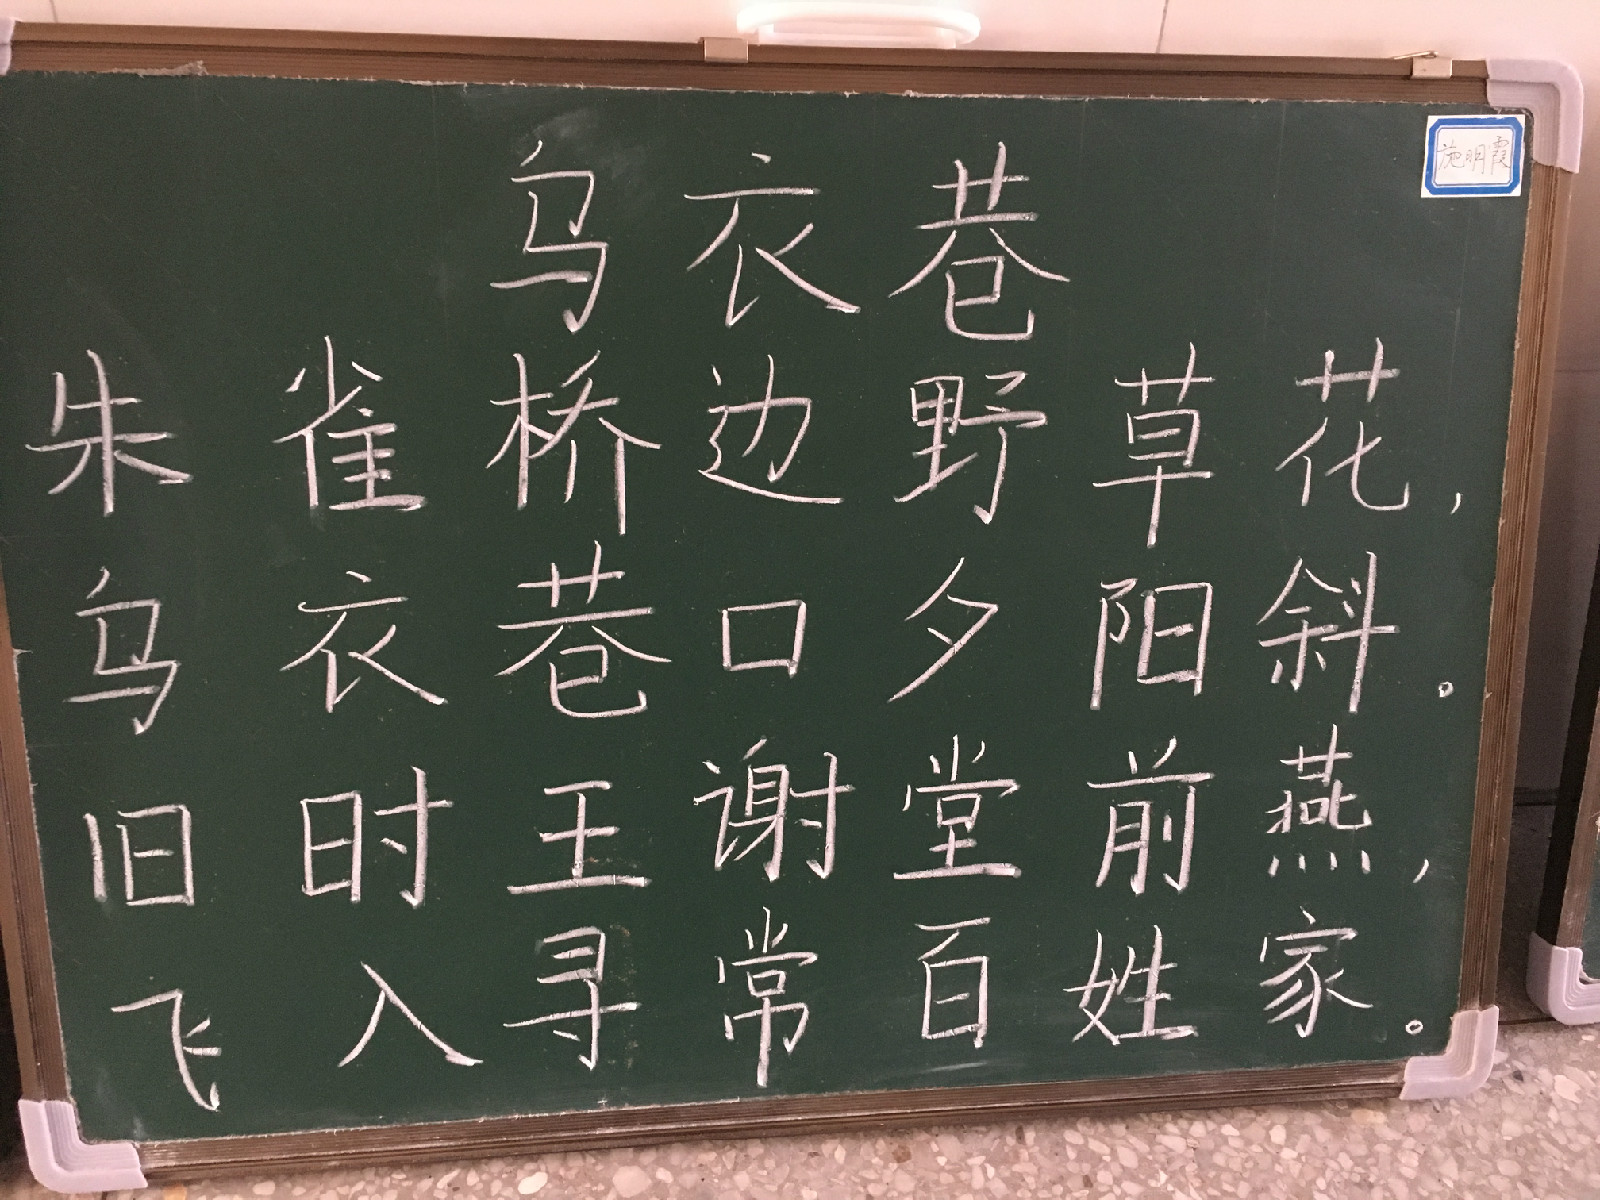 施明霞
乌衣巷
朱雀桥边野草花，
乌衣巷口夕阳斜。
旧时王谢堂前燕，
飞入寻常百姓家。